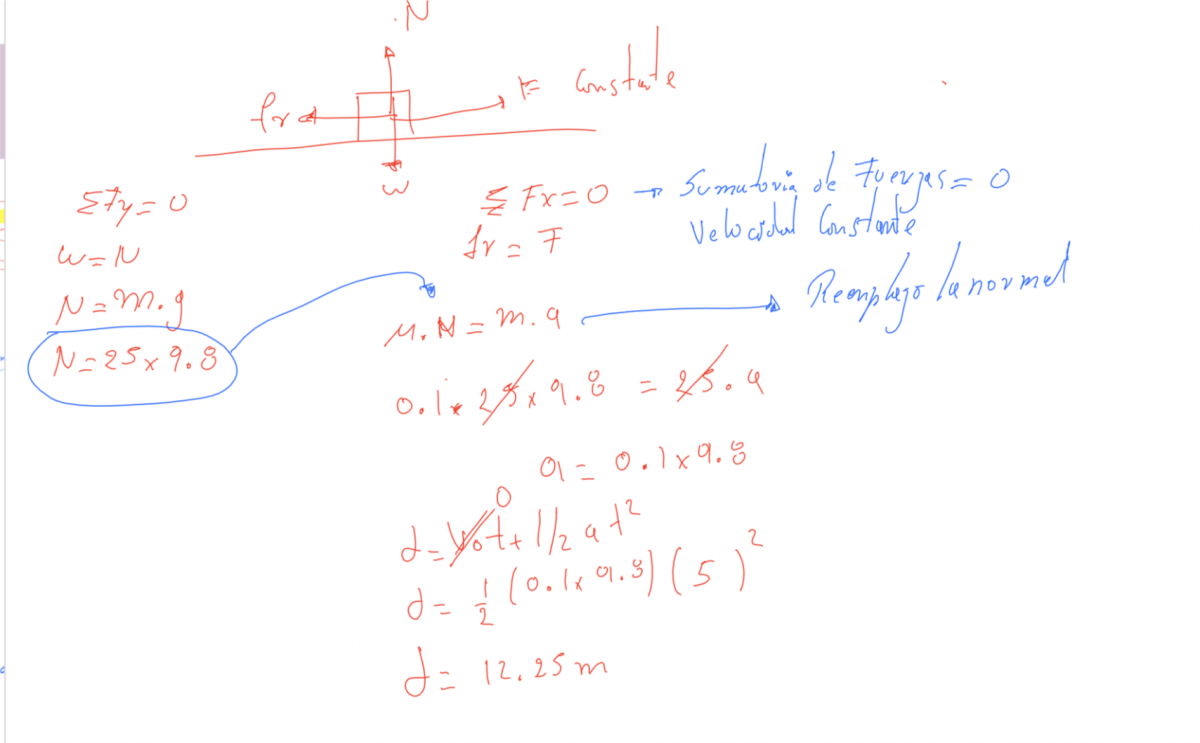 N
fr
F constante
w
ΣFy=0
w=N
N=m.g
N=25x9.8
ΣFx=0 → Sumatoria de Fuerzas=0
Velocidad Constante
fr=F
μ.N=m.a → Reemplazo la normal
0.1x25x9.8=25.a
a=0.1x9.8
0
d=Vot+1/2at²
d=1/2(0.1x9.8)(5)²
d=12.25m